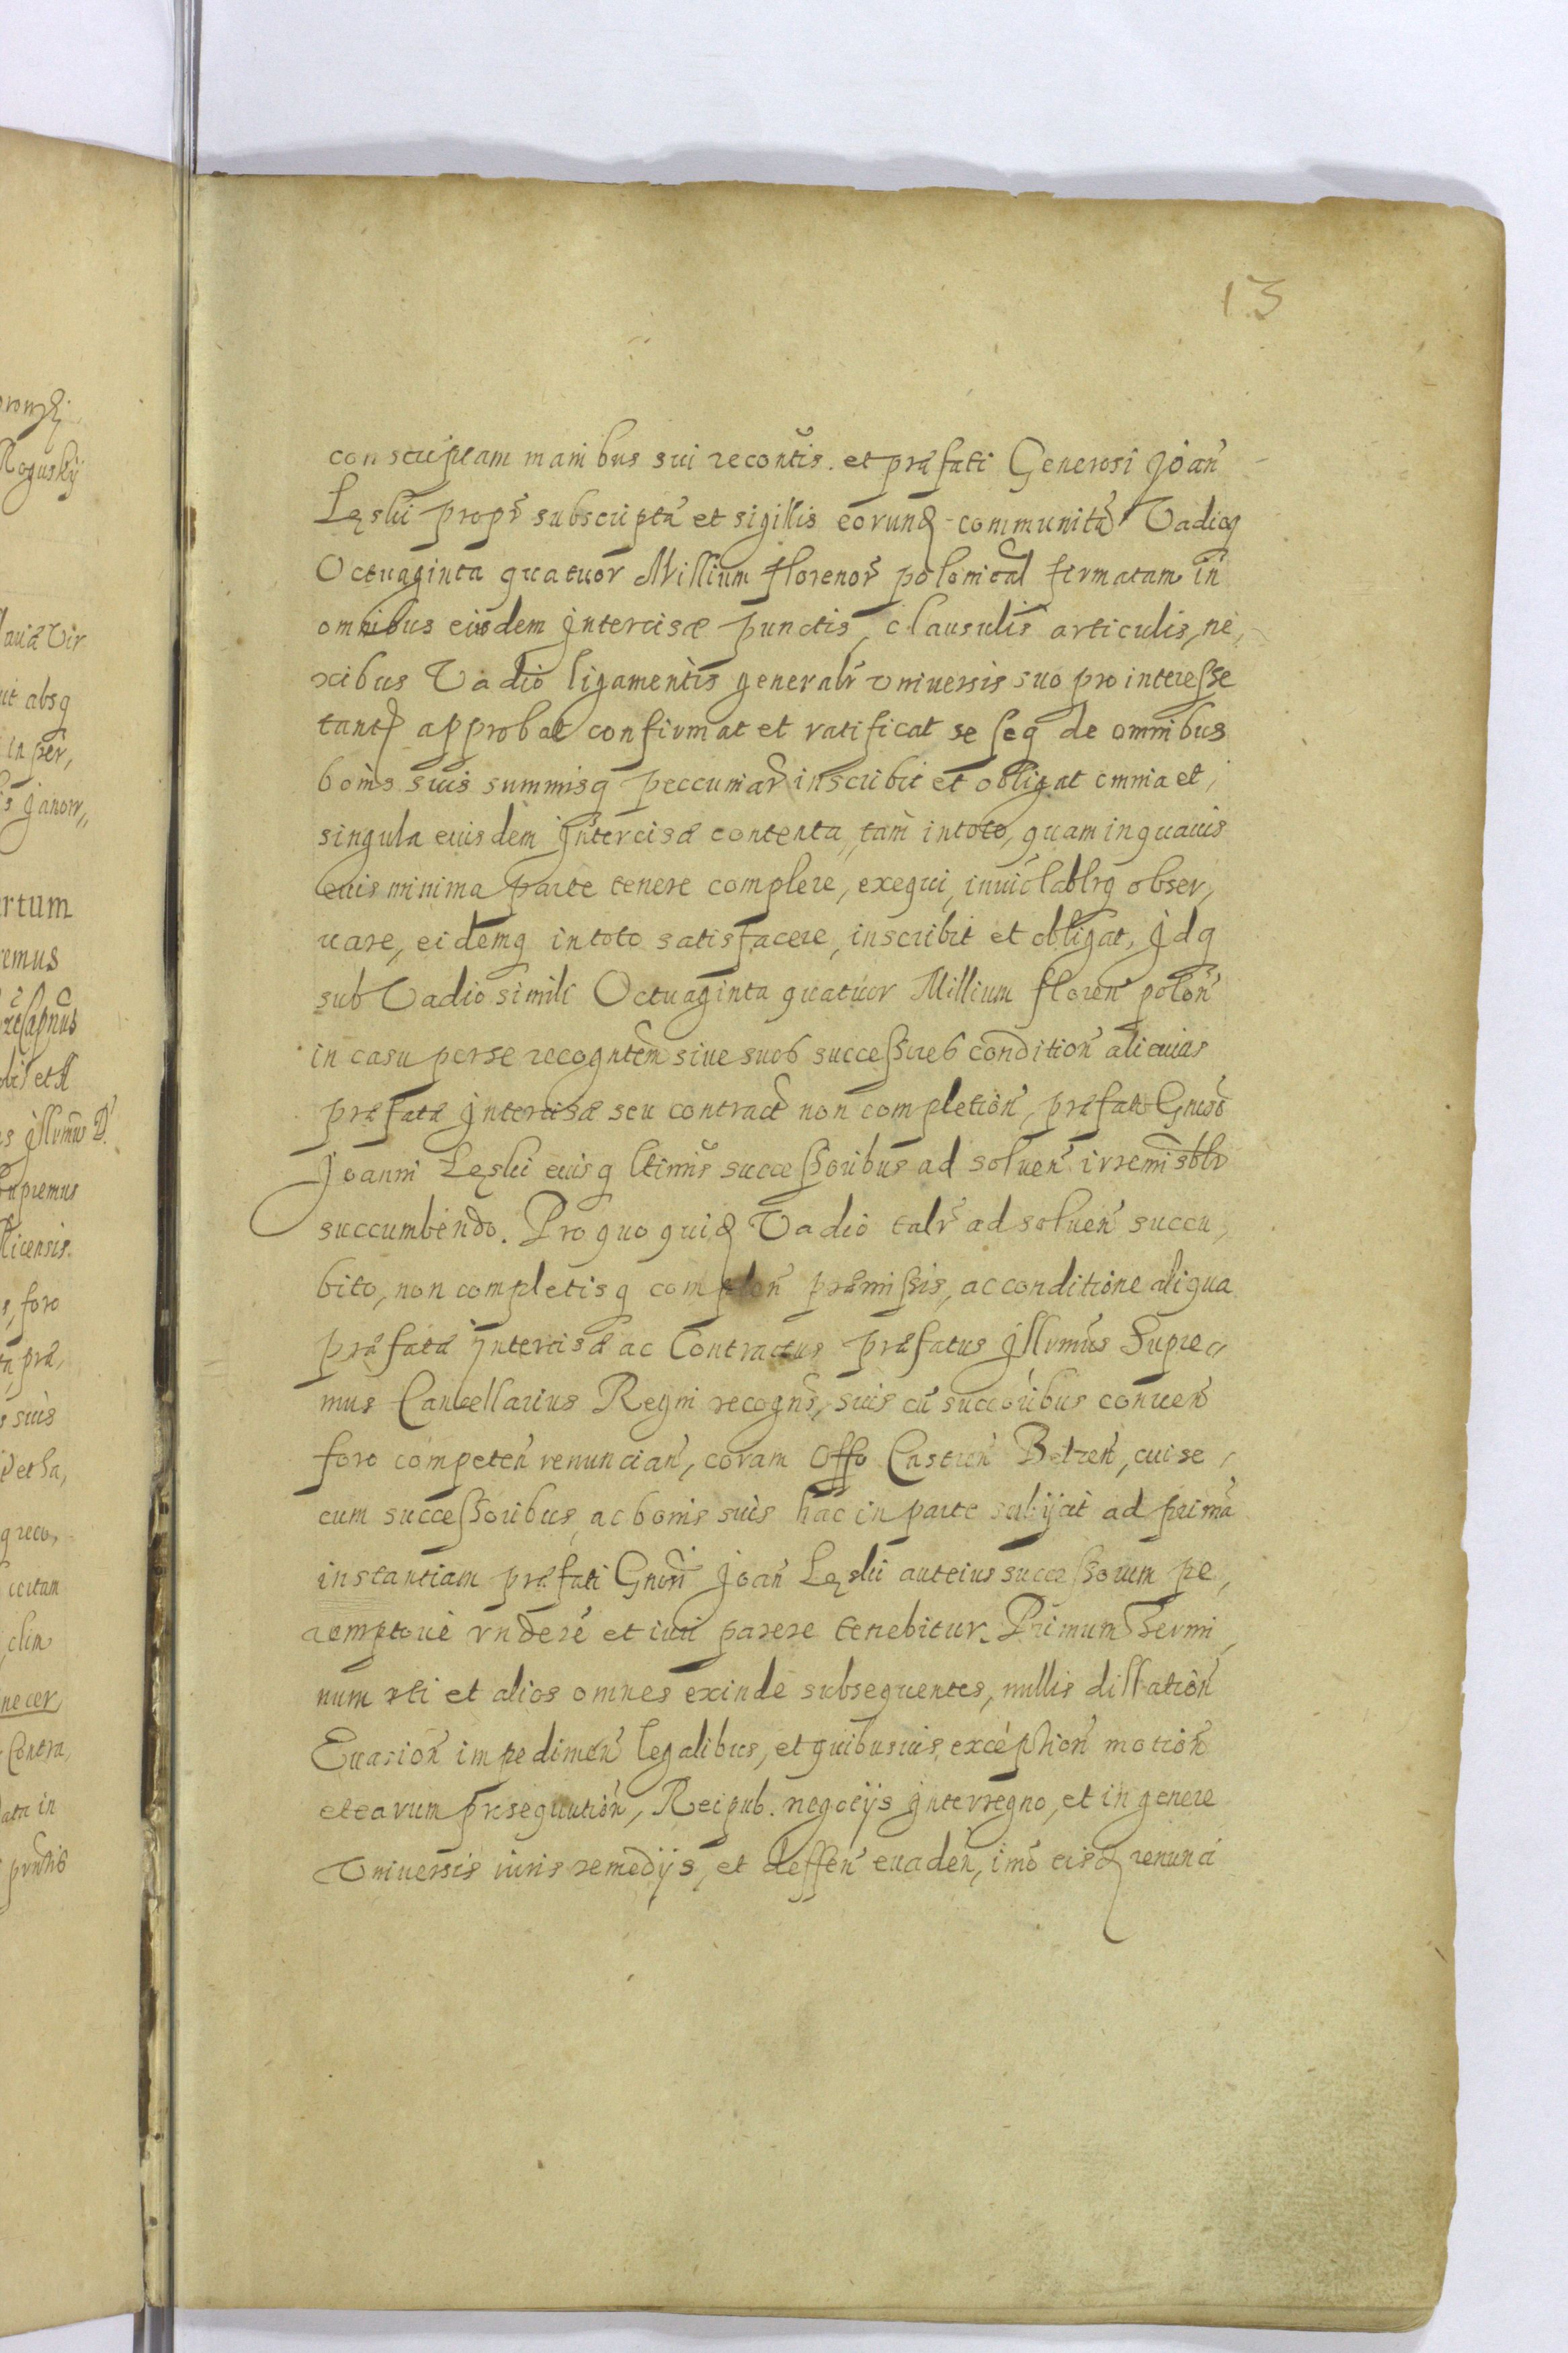 13
conscriptam manibus sui recontis. et præfati Generosi Joan
Lęslii propr subscriptã et sigillis eorund communitã Vadioq
Octuaginta quatuor Millium florenor polonical firmatam in
omnibus eiusdem Intercisæ punctis, clausulis articulis, ne,
xibus Vadio ligamentis generalr vniuersis suo pro interesse
tantũ approbat confirmat et ratificat se seq de omnibus
bonis suis summisq peccuniar inscribit et obligat omnia et,
singula eiusdem Intercisæ contenta, tam in toto, quam in quauis
euis minima parte tenere complere, exequi, inuiolablrq obser,
uare, eidemq in toto satisfacere, inscribit et obligat, Idq
sub Vadio simili Octuaginta quatuor Millium floren polon
in casu per se recogntem siue suos successires condition alicuius
præfatæ Intercisæ seu contract non completion, præfato Gnoso
Joanni Lęslii euisq ltimis successoribus ad soluen irremisblr
succumbendo. Pro quo quid Vadio talr ad soluen succu,
bito, non completisq complen præmissis, ac conditione aliqua
præfatæ Intercisæ ac Contractus præfatus Illvmus Supre
mus Cancellarius Regni recogns, suis cũ succoribus conuen
foro competen renuncian, coram Offo Castren Belzen, cui se,
cum successoribus, ac bonis suis hac in parte subijcit ad primã
instantiam præfati Gnosi Joan Lęslii aut eius successorum pe,
remptorie rndere et iuri parere tenebitur. Primum Termi,
num rti et alios omnes exinde subsequentes, nullis dillation
Euasion impedimen legalibus, et quibusuis, exception motion
et earum prosequution, Reipub. negocijs Interregno, et in genere
Vniuersis iuris remedijs, et deffen euaden, imo eisd renunci
pronsk
Roguskij
lauiæ Vir
uit absq
in per,
is Janow,,
rtum
remus
dit et A
es Illvmus D.
Supremus
licensis.
s, foro
ta, præ,
s suis
q reco,
ccitan
clin
ne cer,
Contra,
atu in